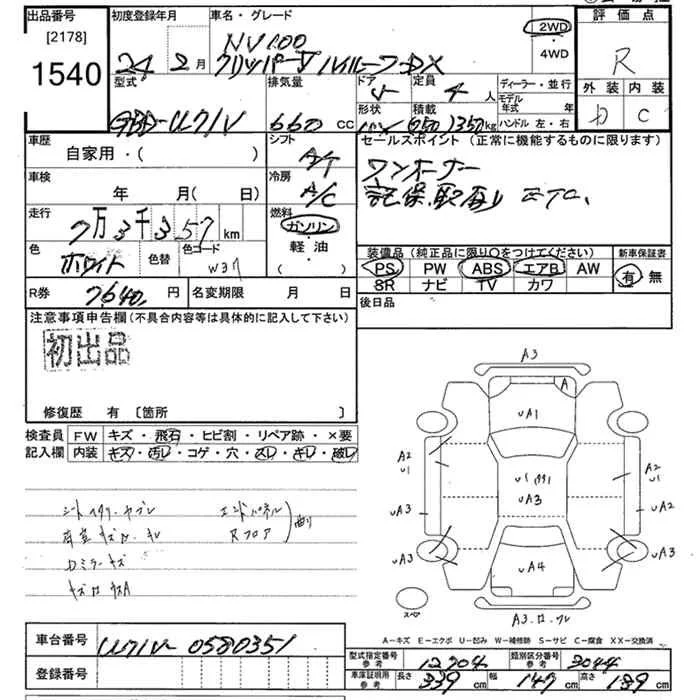 出品番号
[2178]
1540
初度登録年月
24 年 2 月
車名・グレード
NV100
クリッパー V ハイルーフ DX
2WD
・
4WD
評価点
R
外装 内装
D C
型式
GBD-U71V
排気量
660 CC
ドア
5
形状
定員
4 人
積載
350 kg
ディーラー・並行
モデル年式 年
ハンドル 左・右
車歴
自家用・( )
シフト
A/T
車検
年 月( 日)
冷房
A/C
走行
7万3千357 km
燃料
ガソリン
・
軽油
( ・ )
色
ホワイト
色替
色コード
W37
セールスポイント (正常に機能するものに限ります)
ワンオーナー
記保取有り ETC.
装備品 (純正品に限り○をつけてください)
PS PW ABS エアB AW
SR ナビ TV カワ
新車保証書
有 無
R券 7640 円
名変期限 月 日
後日品
注意事項申告欄 (不具合内容等は具体的に記入して下さい)
初出品
修復歴 有 〔箇所 〕
検査員
記入欄
FW キズ・飛石・ヒビ割・リペア跡・×要
内装 キズ・汚レ・コゲ・穴・スレ・キレ・破レ
シートヘタリ・ヤブレ
エンドパネル
Rフロア
曲り
Dミラーキズ
A3
A
UA1
A2
U1
A2
U1
UA3
UA3
UA2
UA3
UA3
UA4
スペア
A3.
A-キズ E-エクボ U-凹み W-補修跡 S-サビ C-腐食 XX-交換済
車台番号 U71V-0580351
登録番号
型式指定番号 参考 12904
類別区分番号 参考 3044
車庫証明用 参考 長さ 339 cm 幅 147 cm 高さ 189 cm